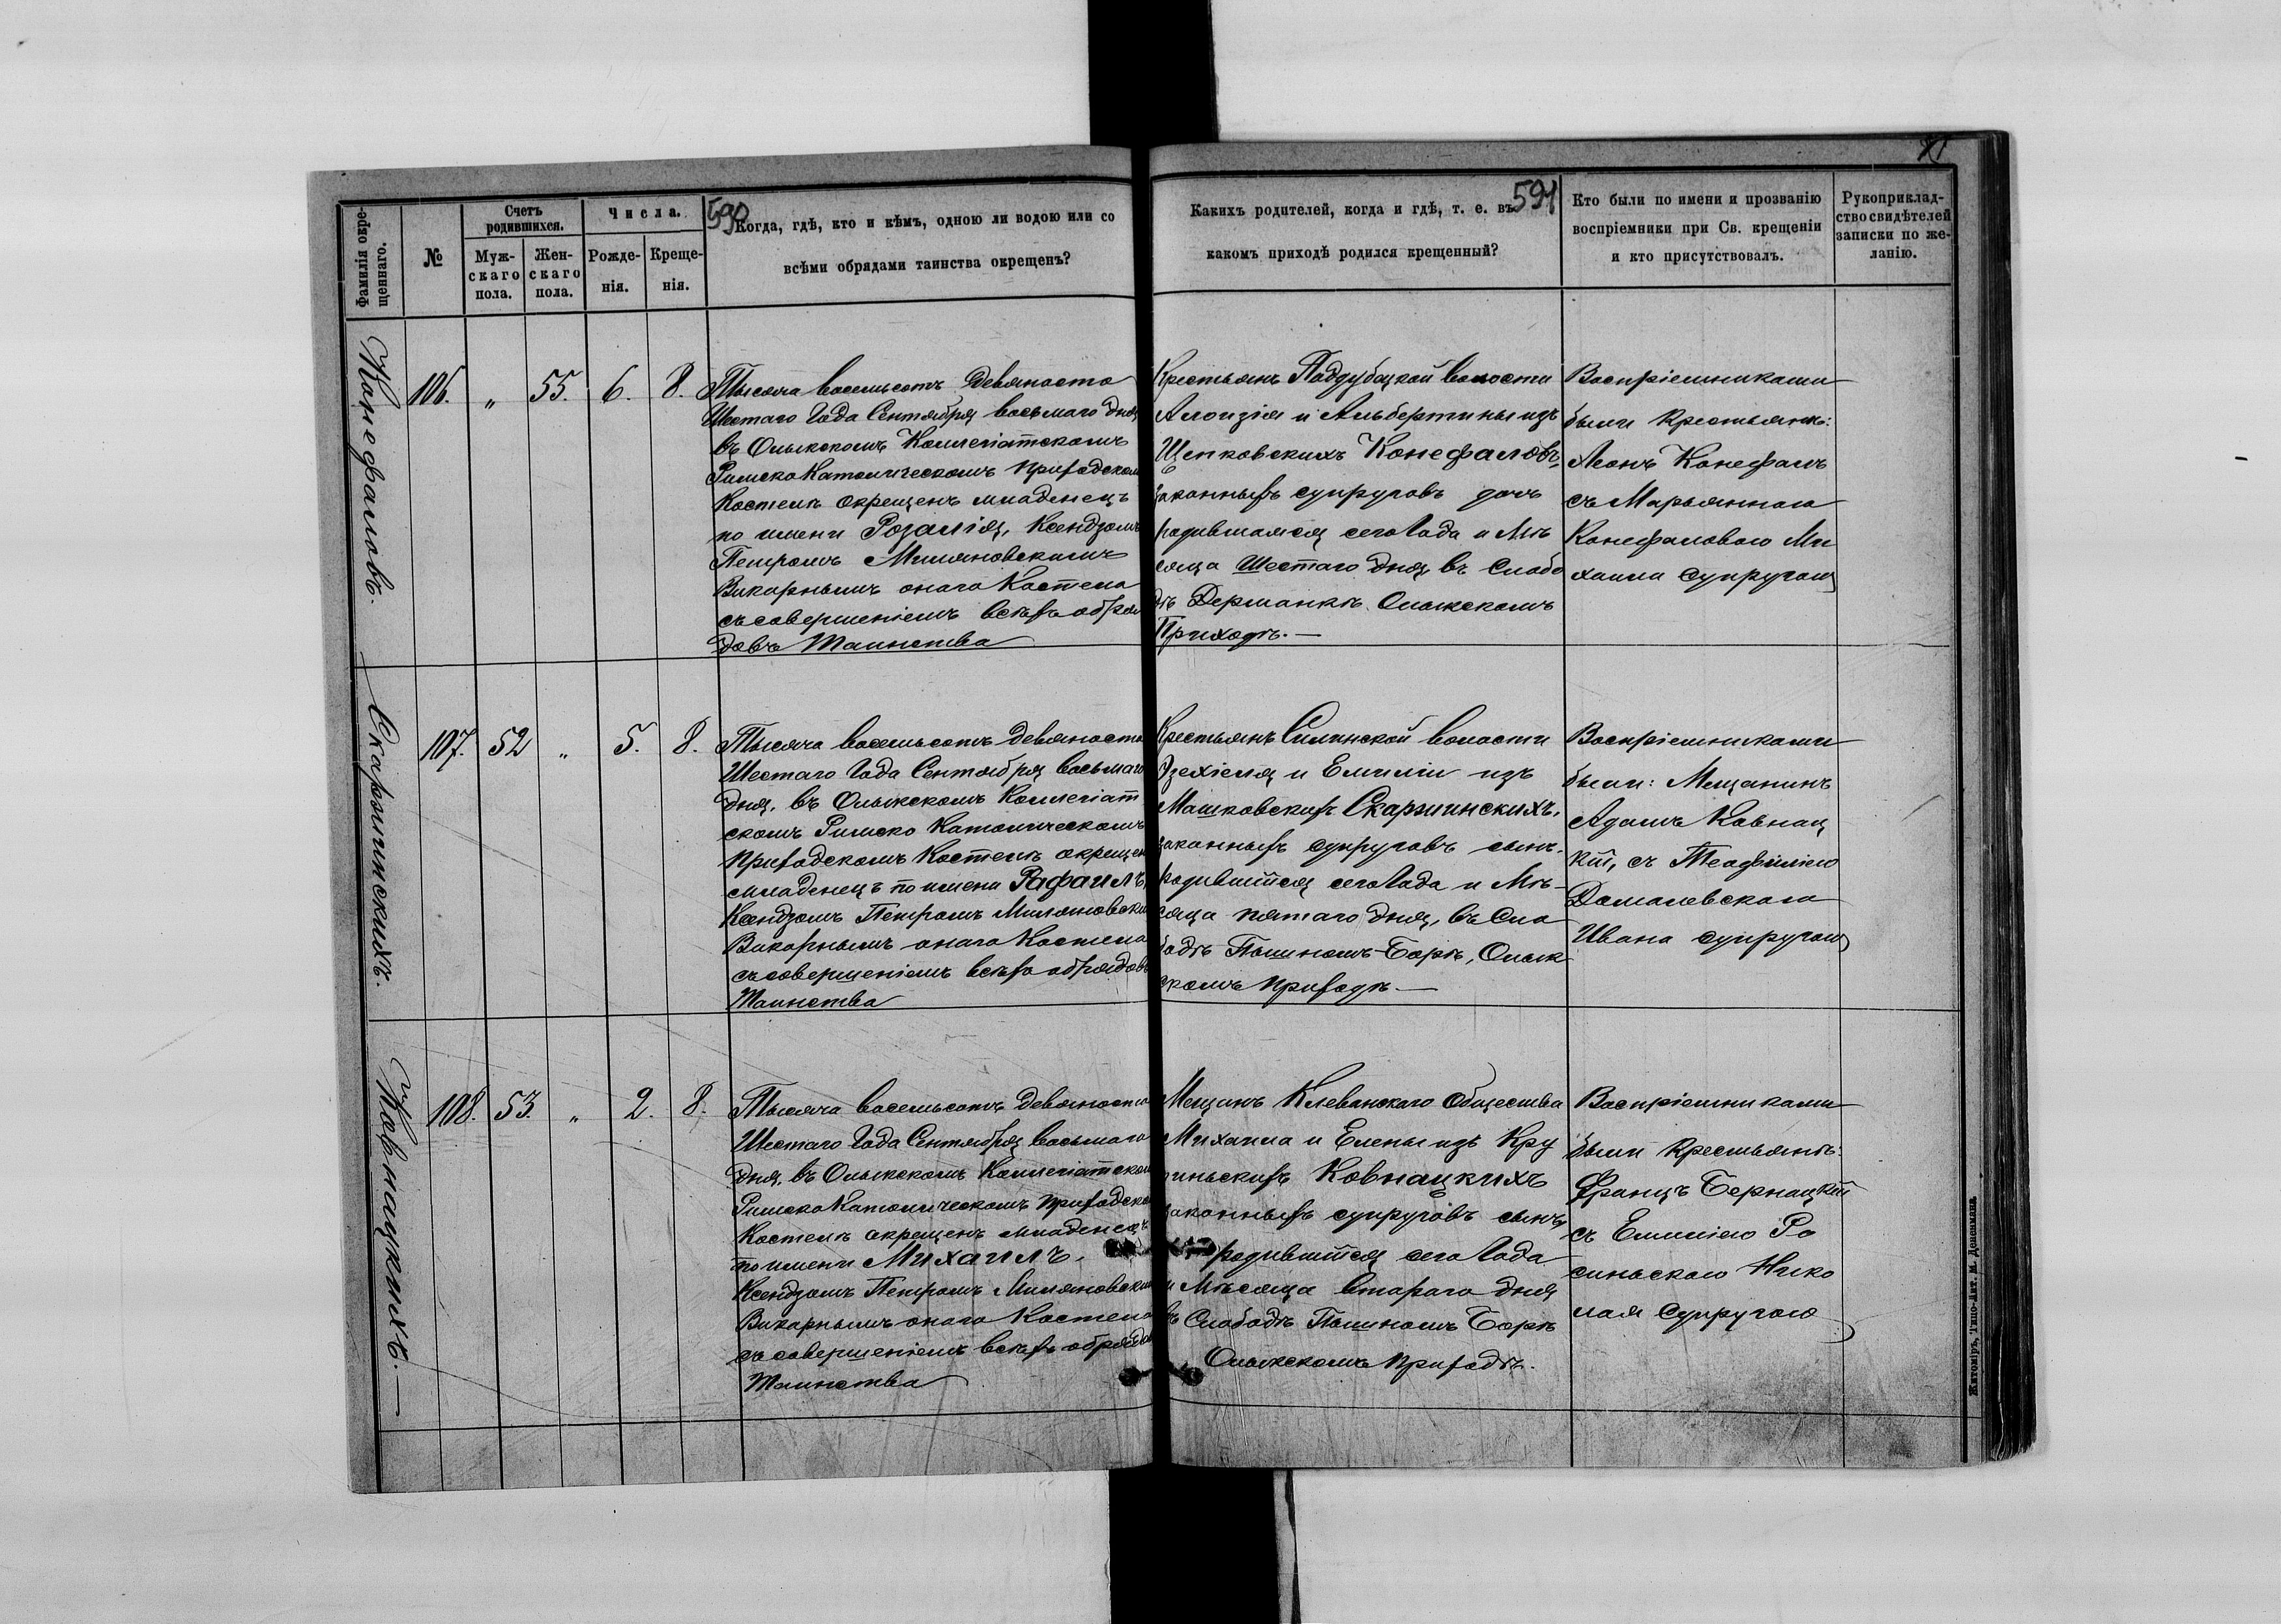 71
590
591
Фамилія окре-
щеннаго.
№
Счетъ
родившихся.
Муж-
скаго
пола.
Жен-
скаго
пола.
Числа.
Рожде-
нія.
Креще-
нія.
Когда, гдѣ, кто и кѣмъ, одною ли водою или со
всѣми обрядами таинства окрещенъ?
Какихъ родителей, когда и гдѣ, т. е. въ
какомъ приходѣ родился крещенный?
Кто были по имени и прозванію
воспріемники при Св. крещеніи
и кто присутствовалъ.
Рукоприклад-
ство свидѣтелей
записки по же-
ланію.
Конефаловъ.
106.
"
55.
6.
8.
Тысяча восемьсотъ девяносто
Шестаго Года Сентября восьмаго дня
въ Олыкскомъ Коллегіатскомъ
Римско Католическомъ Приходском
Костелѣ окрещенъ младенецъ
по имени Розалія, Ксендзомъ
Петромъ Миляновскимъ
Викарнымъ онаго Костела
съ совершеніемъ всѣхъ обря
довъ Таинства
Крестьянъ Поддубецкой волости
Алоизія и Альбертины изъ
Щепковскихъ Конефаловъ,
законныхъ супруговъ дочь
родившаяся сего Года и Мѣ
сяца Шестаго дня въ Слобо
дѣ Дерманкѣ Олыкскомъ
Приходѣ.—
Воспріемниками
были Крестьяне:
Леонъ Конефалъ
съ Марьянною
Конефаловою Ми
хаила супругою
Скаржинскихъ.
107.
52
"
5.
8.
Тысяча восемьсотъ девяносто
Шестаго Года Сентября восьмаго
дня, въ Олыкскомъ Коллегіат
скомъ Римско Католическомъ
Приходскомъ Костелѣ окрещен
младенецъ по имени Рафаилъ,
Ксендзомъ Петромъ Миляновски
Викарнымъ онаго Костела
съ совершеніемъ всѣхъ обрядовъ
Таинства
Крестьянъ Силинской волости
Эзехіеля и Емиліи изъ
Машковскихъ Скаржинскихъ,
законныхъ супруговъ сынъ,
родившійся сего Года и Мѣ-
сяца пятаго дня, въ Сло
бодѣ Пышномъ-Борѣ, Олык
скомъ Приходѣ.—
Воспріемниками
были: Мещанинъ
Адамъ Ковнац
кій, съ Теофилію
Домалевскою
Ивана супругою
Ковнацкихъ.—
108.
53.
"
2.
8.
Тысяча восемьсотъ девяносто
Шестаго Года Сентября восьмаго
дня, въ Олыкскомъ Коллегіатском
Римско Католическомъ Приходско
Костелѣ окрещенъ младенецъ
по имени Михаилъ,
Ксендзомъ Петромъ Миляновским
Викарнымъ онаго Костела
съ совершеніемъ всѣхъ обрядов
Таинства
Мещанъ Клеванскаго Общества
Михаила и Елены изъ Кру
Ковнацкихъ
законныхъ супруговъ сынъ,
родившійся сего Года
и Мѣсяца втораго дня
въ Слободѣ Пышномъ Борѣ
Олыкскомъ Приходѣ.
Воспріемниками
были Крестьяне:
Францъ Бернацкій
съ Емилію Ро
синьскою Нико
лая Супругою
Житоміръ, Типо-Лит. М. Дененмана.